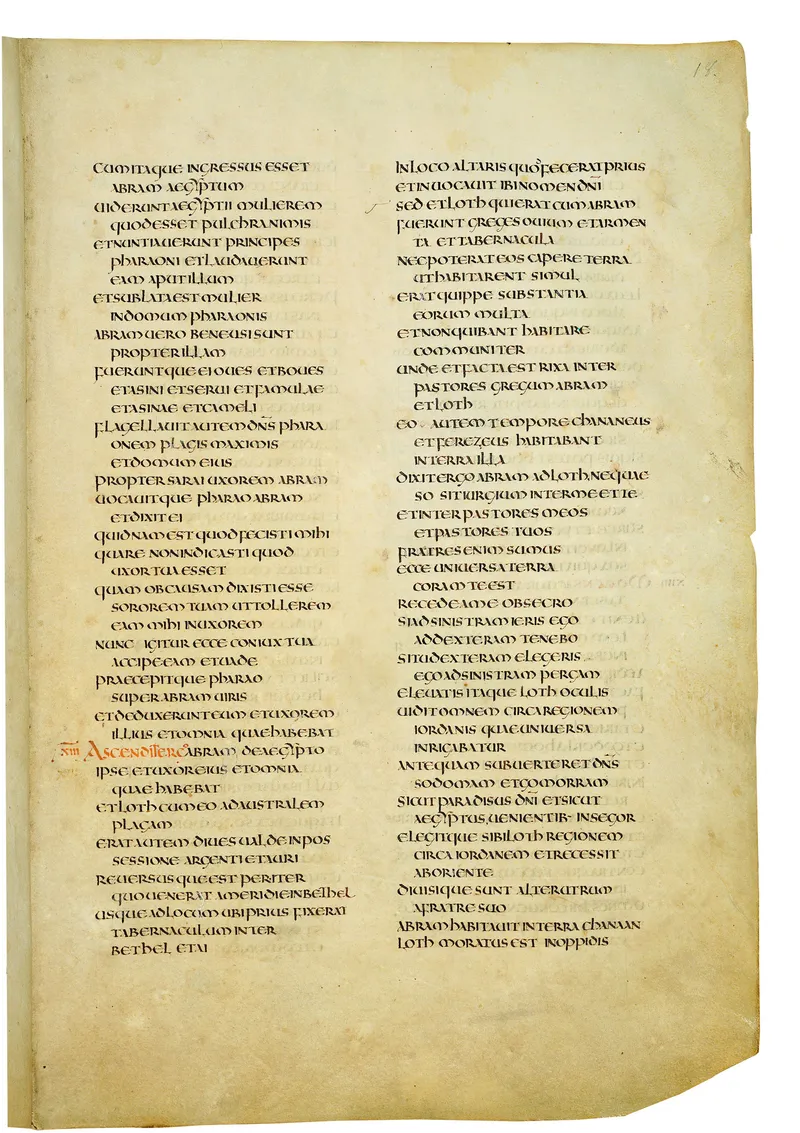 18.
CUMITAQUE INGRESSUS ESSET
ABRAM AEGYPTUM
UIDERUNT AEGYPTII MULIEREM
QUOD ESSET PULCHRA NIMIS
ET NUNTIAUERUNT PRINCIPES
PHARAONI ET LAUDAUERUNT
EAM APUT ILLUM
ET SUBLATA EST MULIER
IN DOMUM PHARAONIS
ABRAM UERO BENE USI SUNT
PROPTER ILLAM
FUERUNTQUE EI OUES ET BOUES
ET ASINI ET SERUI ET FAMULAE
ET ASINAE ET CAMELI
FLAGELLAUIT AUTEM DN̄S PHARA
ONEM PLAGIS MAXIMIS
ET DOMUM EIUS
PROPTER SARAI UXOREM ABRAM
UOCAUITQUE PHARAO ABRAM
ET DIXIT EI
QUIDNAM EST QUOD FECISTI MIHI
QUARE NON INDICASTI QUOD
UXOR TUA ESSET
QUAM OB CAUSAM DIXISTI ESSE
SOROREM TUAM UT TOLLEREM
EAM MIHI IN UXOREM
NUNC IGITUR ECCE CONIUX TUA
ACCIPE EAM ET UADE
PRAECEPITQUE PHARAO
SUPER ABRAM UIRIS
ET DEDUXERUNT EUM ET UXOREM
ILLIUS ET OMNIA QUAE HABEBAT
XIII ASCENDIT ERGO ABRAM DE AEGYPTO
IPSE ET UXOR EIUS ET OMNIA
QUAE HABEBAT
ET LOTH CUM EO AD AUSTRALEM
PLAGAM
ERAT AUTEM DIUES UALDE IN POS
SESSIONE ARGENTI ET AURI
REUERSUSQUE EST PER ITER
QUO UENERAT A MERIDIE IN BETHEL
USQUE AD LOCUM UBI PRIUS FIXERAT
TABERNACULUM INTER
BETHEL ET AI
IN LOCO ALTARIS QUOD FECERAT PRIUS
ET INUOCAUIT IBI NOMEN DN̄I
SED ET LOTH QUI ERAT CUM ABRAM
FUERUNT GREGES OUIUM ET ARMEN
TA ET TABERNACULA
NEC POTERAT EOS CAPERE TERRA
UT HABITARENT SIMUL
ERAT QUIPPE SUBSTANTIA
EORUM MULTA
ET NON QUIBANT HABITARE
COMMUNITER
UNDE ET FACTA EST RIXA INTER
PASTORES GREGUM ABRAM
ET LOTH
EO AUTEM TEMPORE CHANANEUS
ET FEREZEUS HABITABANT
IN TERRA ILLA
DIXIT ERGO ABRAM AD LOTH NE QUAE
SO SIT IURGIUM INTER ME ET TE
ET INTER PASTORES MEOS
ET PASTORES TUOS
FRATRES ENIM SUMUS
ECCE UNIUERSA TERRA
CORAM TE EST
RECEDE A ME OBSECRO
SI AD SINISTRAM IERIS EGO
AD DEXTERAM TENEBO
SI TU DEXTERAM ELEGERIS
EGO AD SINISTRAM PERGAM
ELEUATIS ITAQUE LOTH OCULIS
UIDIT OMNEM CIRCA REGIONEM
IORDANIS QUAE UNIUERSA
INRIGABATUR
ANTEQUAM SUBUERTERET DN̄S
SODOMAM ET GOMORRAM
SICUT PARADISUS DN̄I ET SICUT
AEGYPTUS UENIENTIB· IN SEGOR
ELEGITQUE SIBI LOTH REGIONEM
CIRCA IORDANEM ET RECESSIT
AB ORIENTE
DIUISIQUE SUNT ALTERUTRUM
A FRATRE SUO
ABRAM HABITAUIT IN TERRA CHANAAN
LOTH MORATUS EST IN OPPIDIS